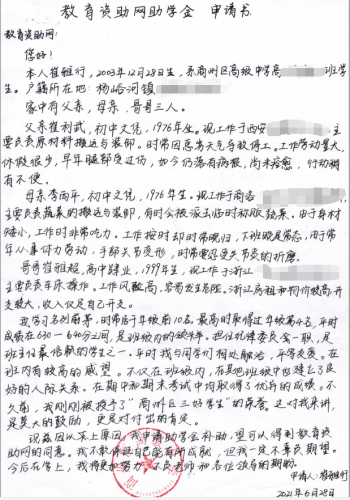 教育资助网助学金 申请书
教育资助网:
您好!
本人崔雅行, 2003年12月28日生, 系商州区高级中学高 班学
生。户籍所在地: 杨峪河镇
家中有父亲, 母亲, 哥哥三人。
父亲崔利武, 初中文凭, 1976年生。现工作于西安
主要负责原材料搬运与装卸。时常因恶劣天气导致停工。工作劳动量大,
休假很少, 早年腿部受过伤, 如今仍落有病根, 尚未痊愈, 行动稍
有不便。
母亲李两平, 初中文凭, 1976年生。现工作于商洛
主要负责蔬菜的搬运与装卸, 有时会被派去临时称取蔬果。由于身材
矮小, 工作时非常吃力。工作按时却时常晚归, 下班晚是常态, 由于常
年从事体力劳动, 手部关节变形, 时常遭忍受关节炎的折磨。
哥哥崔雅超, 高中肄业, 1999年生, 现工作于浙江
主要负责车床操作。工作风险高, 容易发生危险。浙江房租和物价较高, 开
支较大, 收入仅足自己开支。
我学习名列前茅, 时常居于年级前10名。最高时取得过年级第4名, 平时
成绩在630—640分间, 是班级内的佼佼者。担任纪律委员一职, 是
班主任最信赖的学生之一。平时我与同学们相处融洽, 平等友爱。在
班内有较高的威望。不仅在班级内, 在其他班级中也建立了良
好的人际关系。在期中和期末考试中均取得了优异的成绩。不
久前, 我刚刚被授予了“商州区三好学生”的荣誉。这对我来讲,
是莫大的鼓励, 更是对付出的肯定。
现兹因以上原因, 我申请助学金补助, 望可以得到教育资
助网的同意。我不敢保证自己能有所成就, 但我一定不辜负期望。
今后在学上, 我将更加努力, 不负老师和各位领导的期助。
申请人: 崔雅行
2021年6月28日